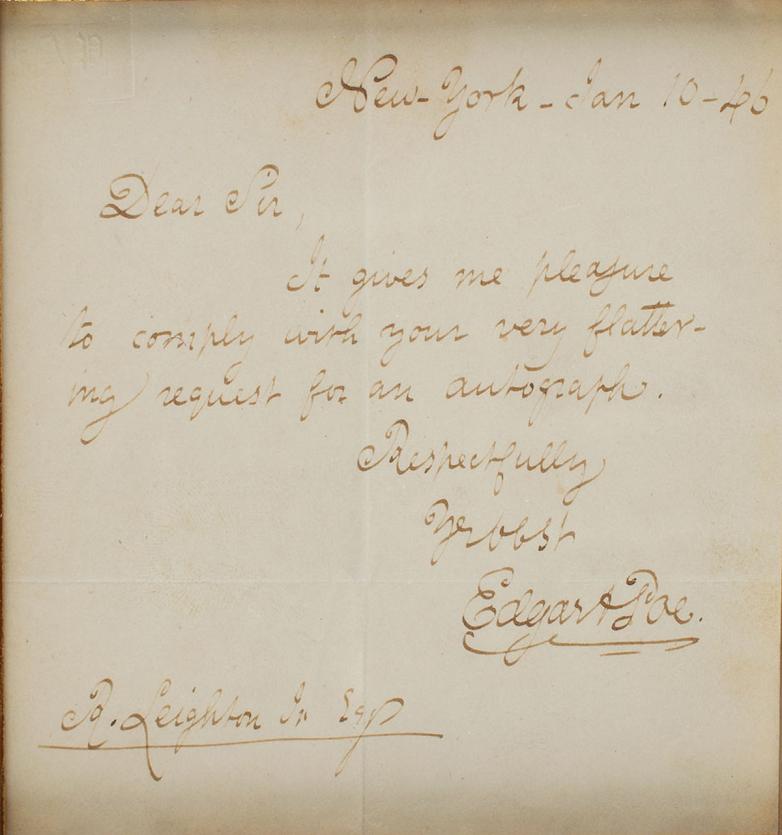 New-York - Jan 10-46
Dear Sir,
It gives me pleasure
to comply with your very flatter-
ing request for an autograph.
Respectfully
Yr obst
Edgar A Poe.
R. Leighton Jr Esqr